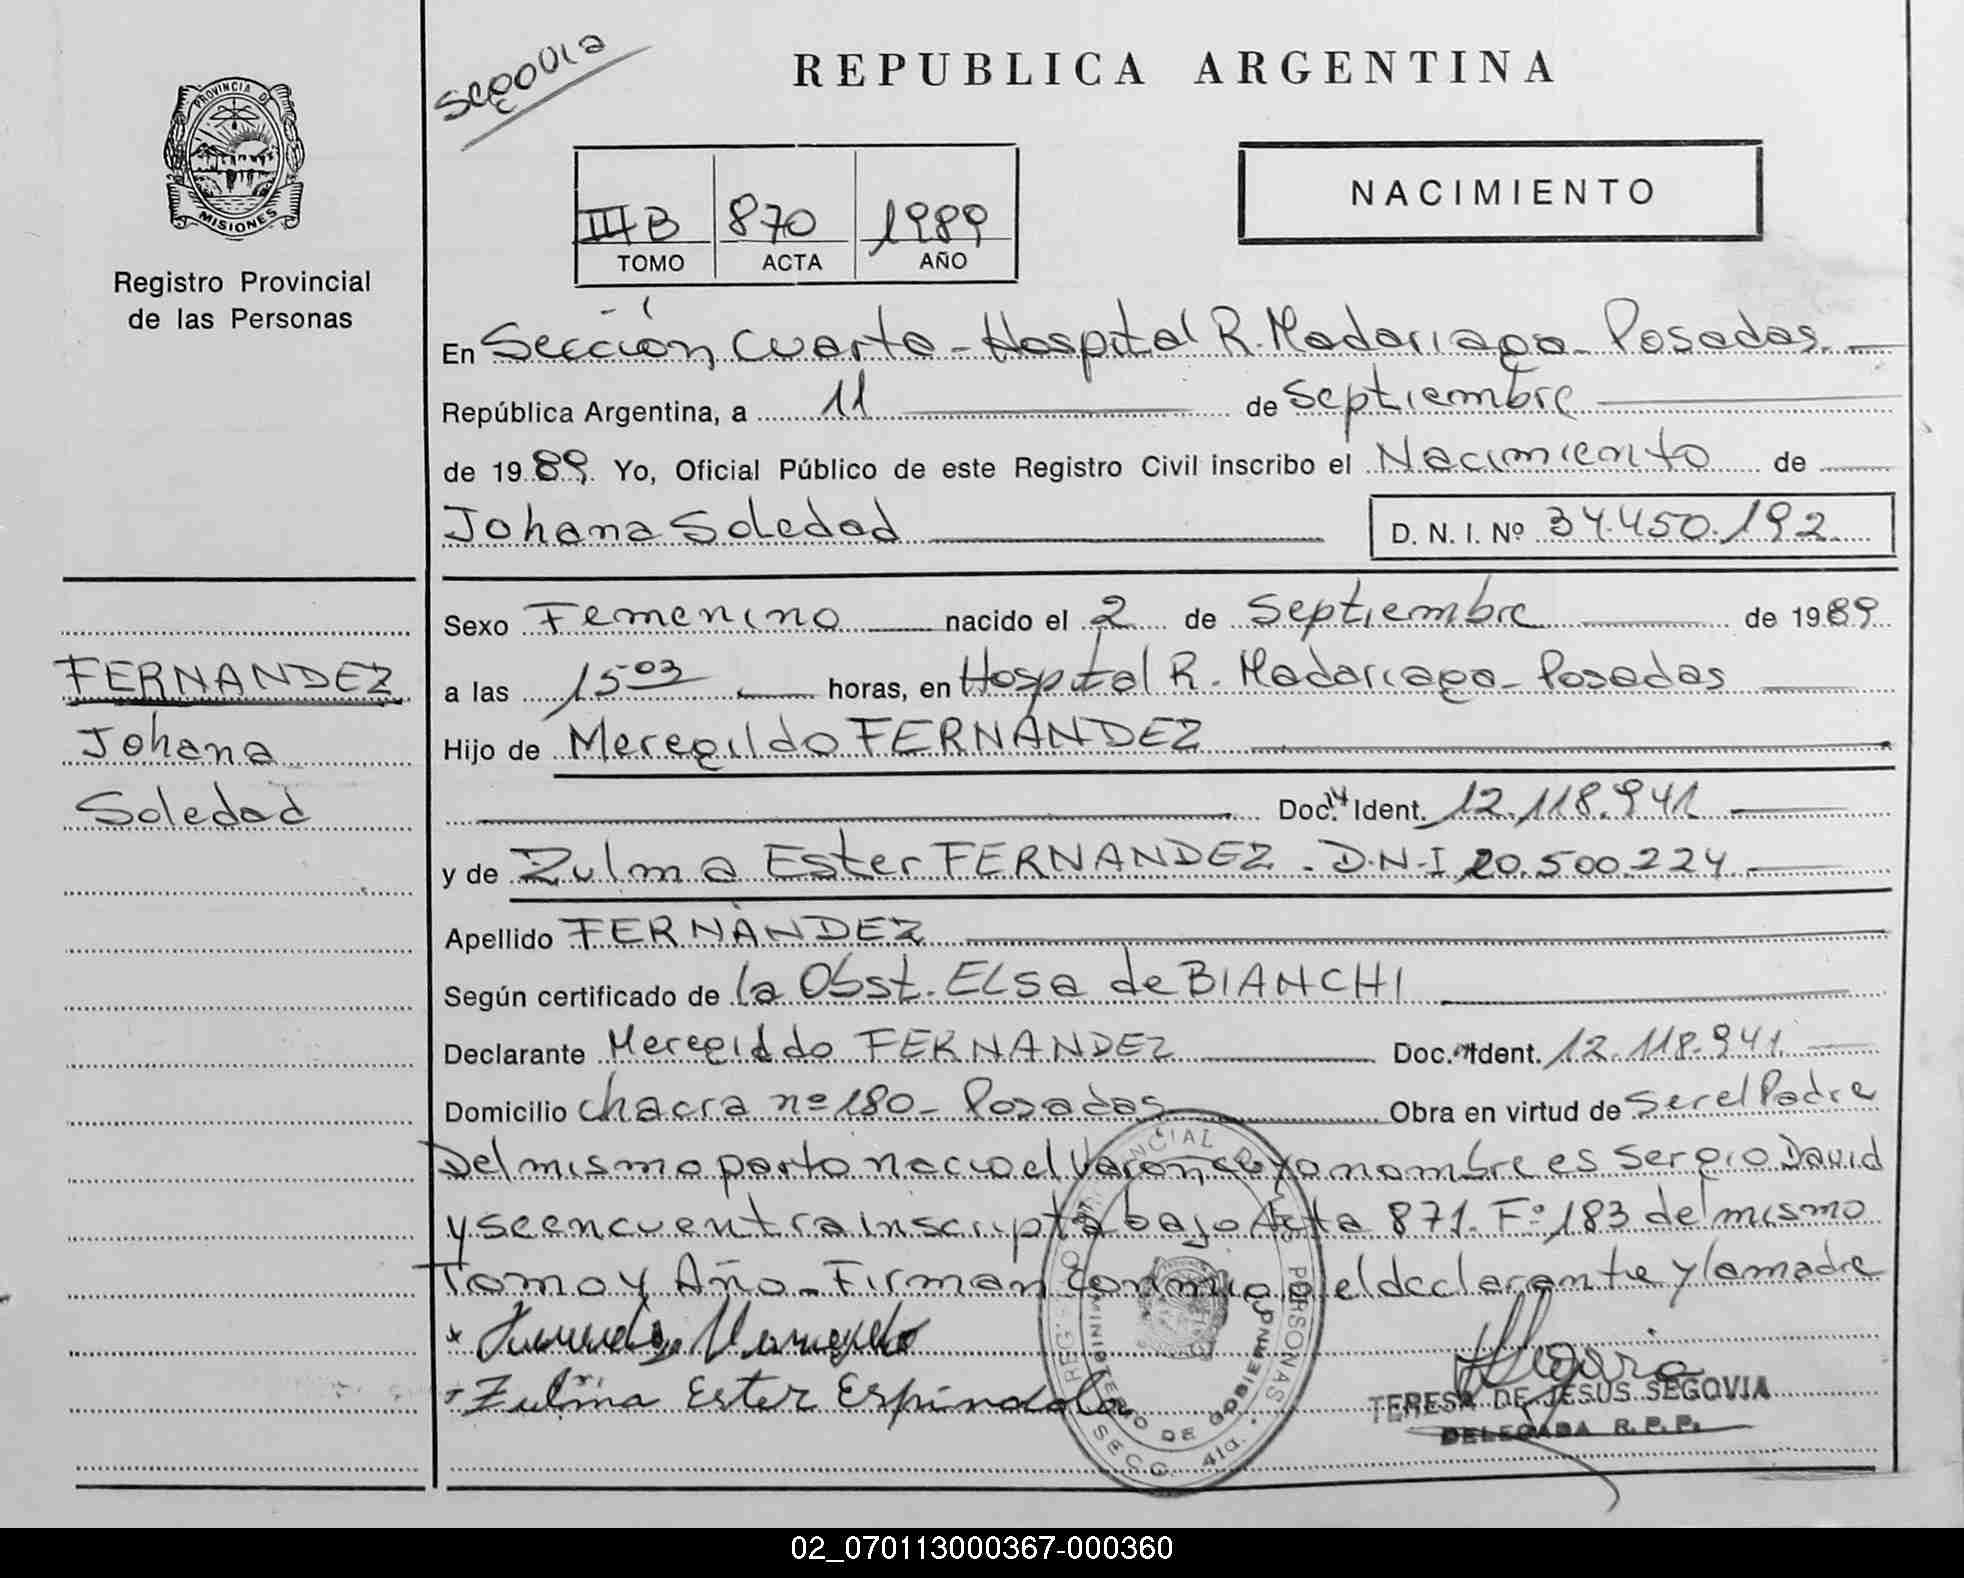 Segovia
REPUBLICA ARGENTINA
PROVINCIA DE
MISIONES
Registro Provincial
de las Personas
III B 870 1989
TOMO ACTA AÑO
NACIMIENTO
En Sección Cuarta - Hospital R. Madariaga - Posadas
República Argentina, a 11 de Septiembre
de 1989 Yo, Oficial Público de este Registro Civil inscribo el Nacimiento de
Johana Soledad D. N. I. Nº 34.450.192
FERNANDEZ
Johana
Soledad
Sexo Femenino nacido el 2 de Septiembre de 1989
a las 15 03 horas, en Hospital R. Madariaga - Posadas
Hijo de Meregildo FERNANDEZ
Doc. Ident. 12.118.941
y de Zulma Ester FERNANDEZ. D.N.I 20.500.224
Apellido FERNANDEZ
Según certificado de la Obst. ELSa de BIANCHI
Declarante Meregildo FERNANDEZ Doc. Ident. 12.118.941
Domicilio chacra nº 180 - Posadas Obra en virtud de Ser el Padre
Del mismo parto nacio el Varon cuyo nombre es Sergio David
y se encuentra inscripta bajo Acta 871. Fº 183 del mismo
Tomo y Año - Firman conmigo el declarante y la madre
Zulma Ester Espindola
TERESA DE JESUS SEGOVIA
DELEGADA R. P. P.
MINISTERIO DE GOBIERNO
SECC. 4ta.
02_070113000367-000360